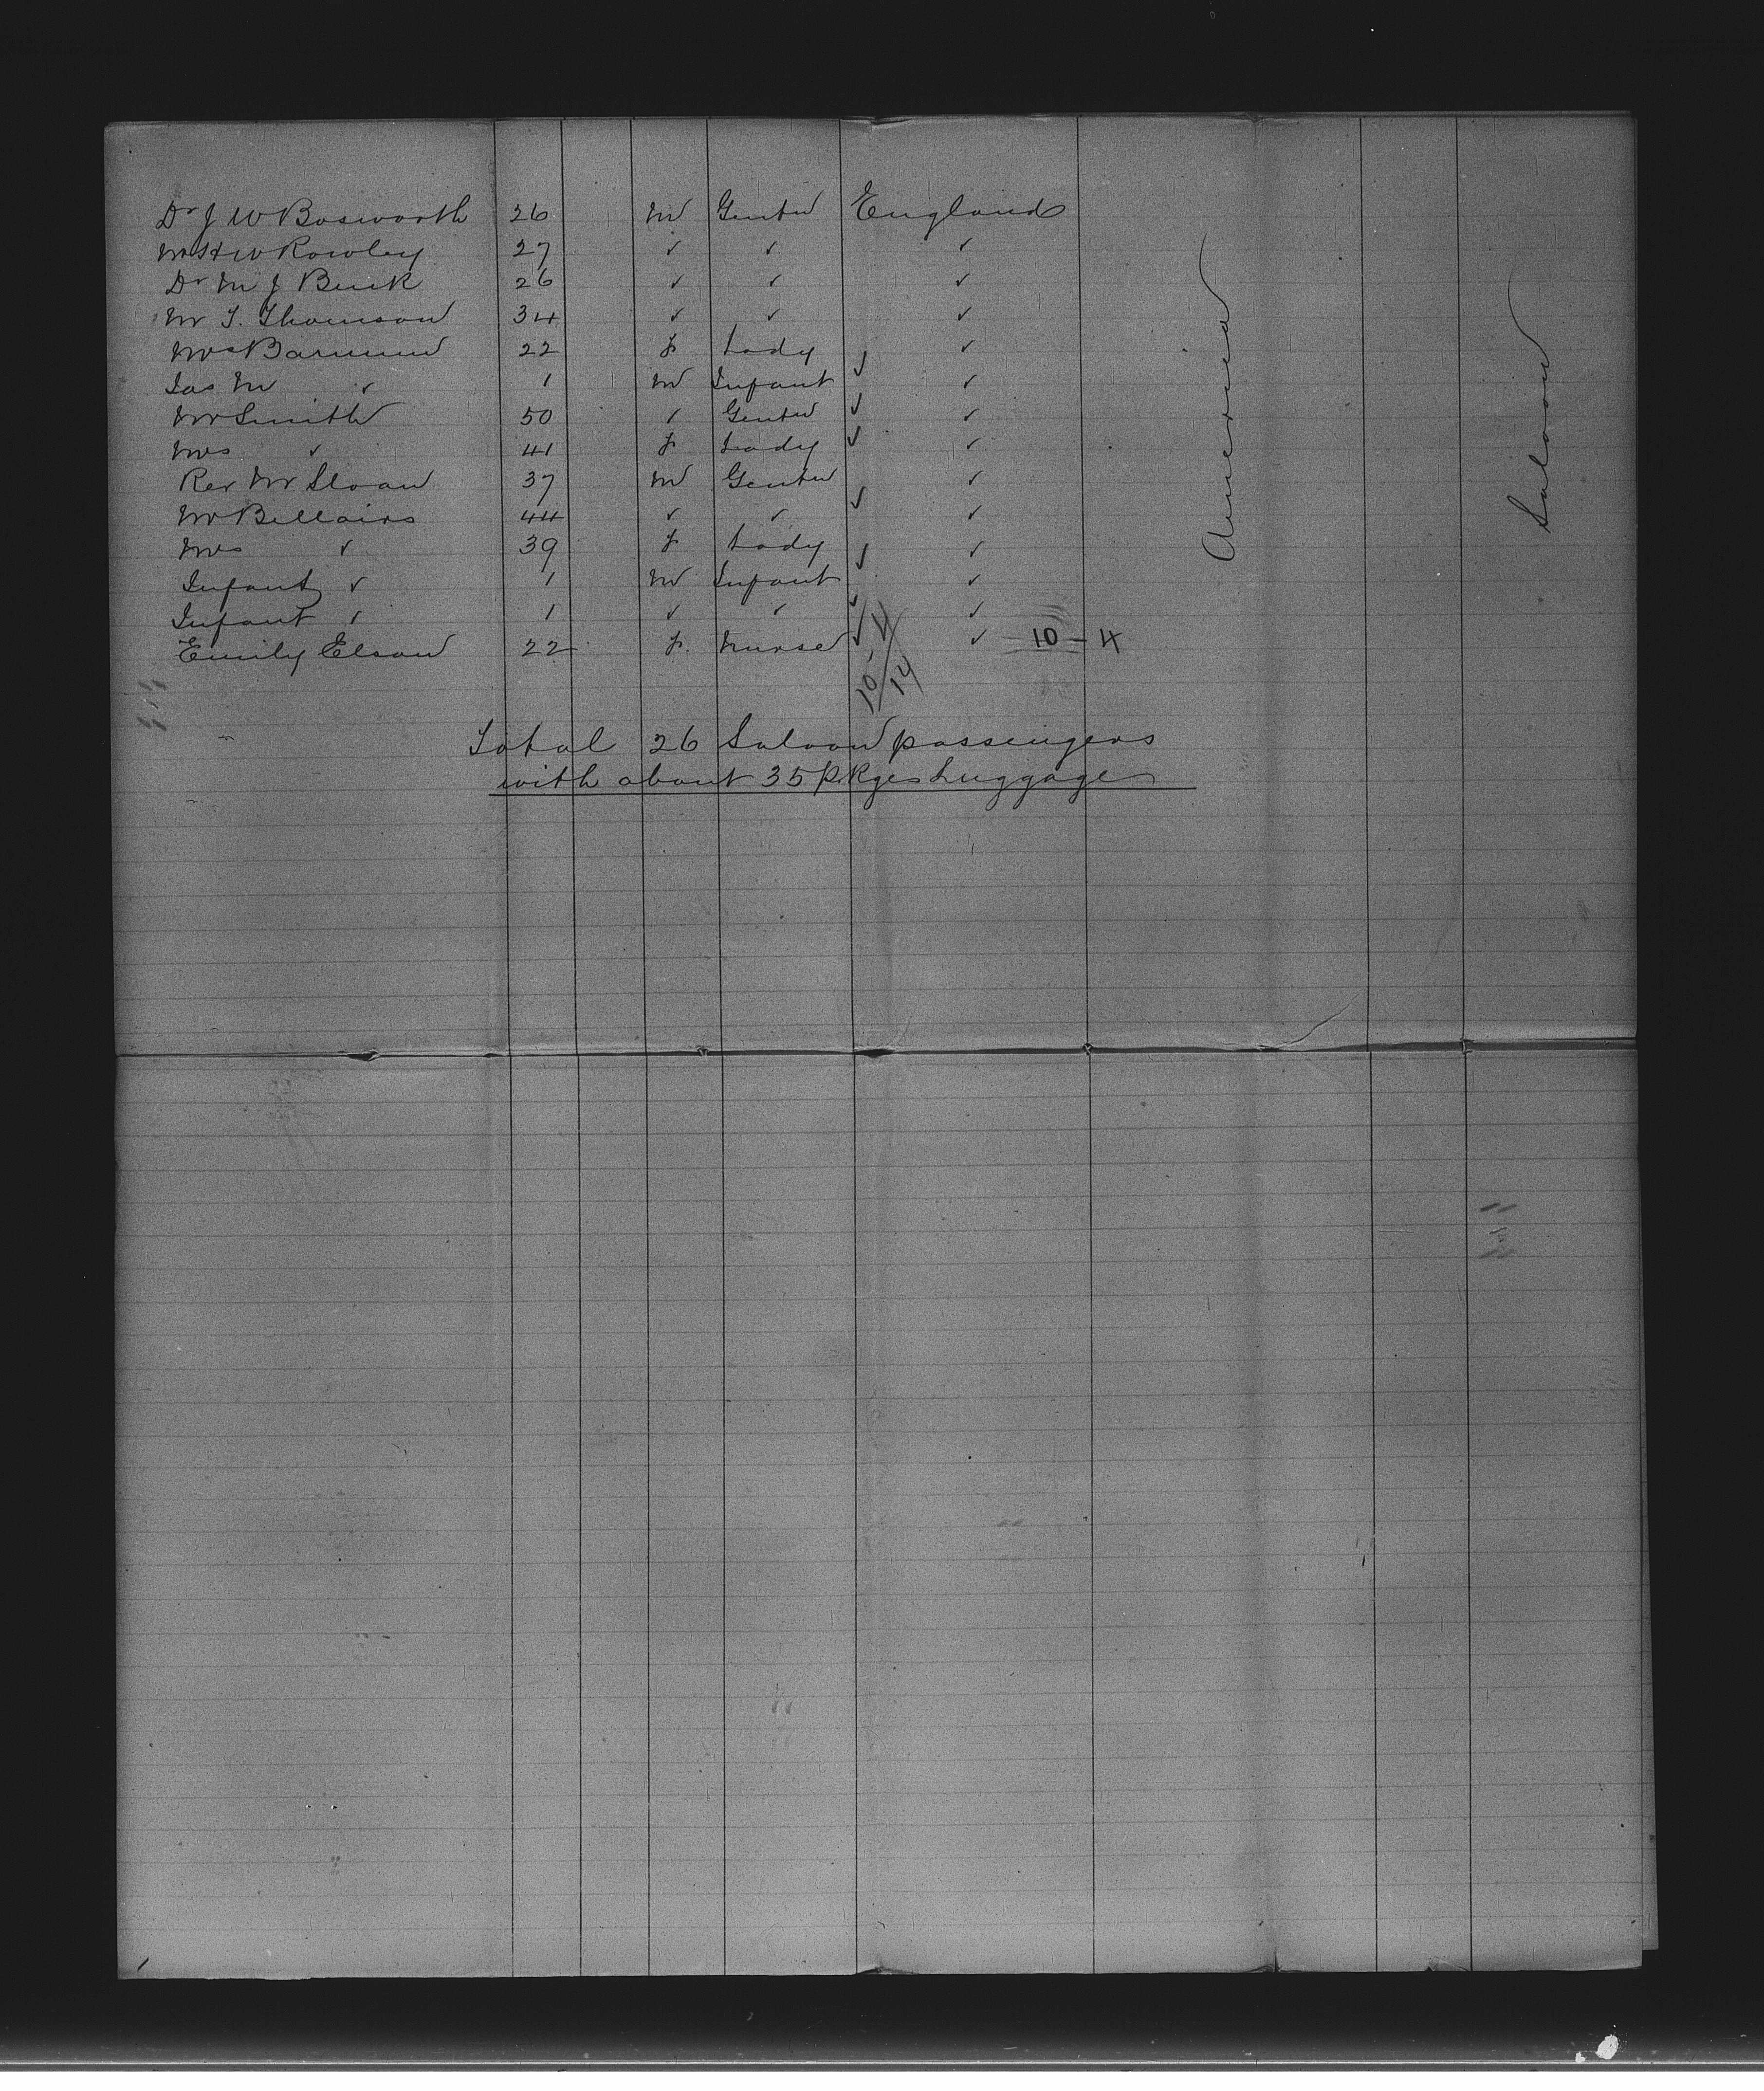 Dr J W Bosworth 26 M Gentn England
Mr H W Rowley 27 ✓ ✓ ✓
Dr M J Buck 26 ✓ ✓ ✓
Mr T. Thomson 34 ✓ ✓ ✓
Mrs Barnum 22 F Lady ✓
Jas M ✓ 1 M Infant ✓ ✓
Mr Smith 50 ✓ Gentn ✓ ✓
Mrs ✓ 41 F Lady ✓ ✓
Rev Mr Sloan 37 M Gentn ✓
Mr Bellairs 44 ✓ ✓ ✓ ✓
Mrs ✓ 39 F Lady ✓ ✓
Infant ✓ 1 M Infant ✓
Infant ✓ 1 ✓ ✓ ✓ ✓
Emily Elson 22 F. Nurse ✓ ✓ 10 - 4
10 - 4
14
America
Saloon
Total 26 Saloon passengers
with about 35 pkges Luggage